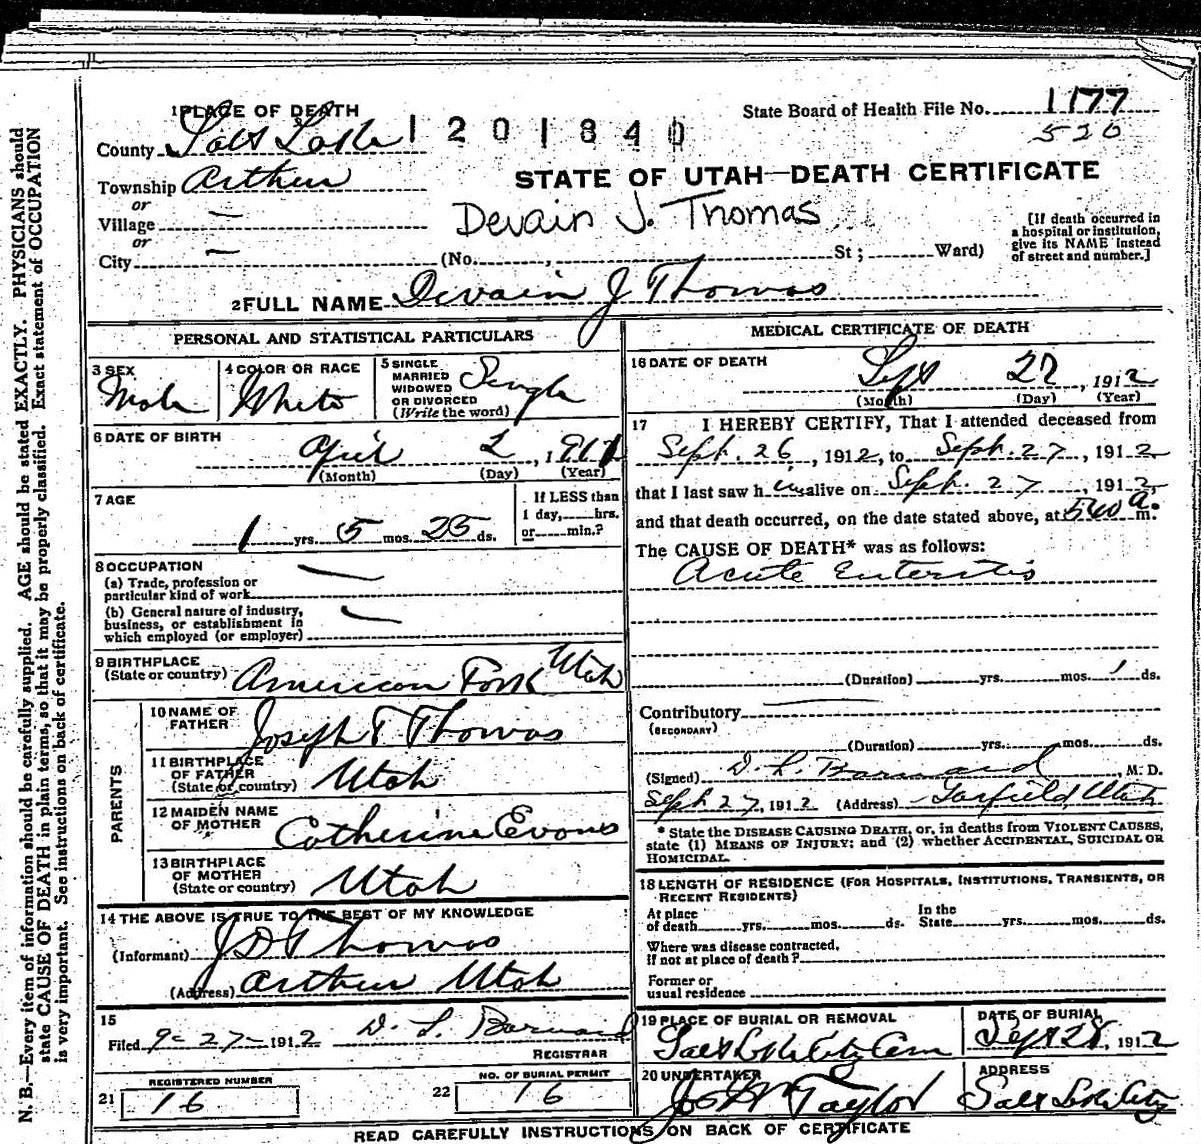 1 PLACE OF DEATH
State Board of Health File No. 1177
1201840
526
County Salt Lake
Township Arthur
STATE OF UTAH—DEATH CERTIFICATE
or
Village —
Devain J. Thomas
or
City —
(No. , St; Ward)
[If death occurred in
a hospital or institution,
give its NAME instead
of street and number.]
2 FULL NAME Devain J Thomas
PERSONAL AND STATISTICAL PARTICULARS
3 SEX
Male
4 COLOR OR RACE
White
5 SINGLE
MARRIED
WIDOWED
OR DIVORCED
(Write the word)
Single
6 DATE OF BIRTH
April 2, 1911
(Month) (Day) (Year)
7 AGE
1 yrs. 5 mos. 25 ds.
If LESS than
1 day, hrs.
or min.?
8 OCCUPATION
(a) Trade, profession or
particular kind of work —
(b) General nature of industry,
business, or establishment in
which employed (or employer) —
9 BIRTHPLACE
(State or country) American Fork Utah
PARENTS
10 NAME OF
FATHER Joseph T Thomas
11 BIRTHPLACE
OF FATHER
(State or country) Utah
12 MAIDEN NAME
OF MOTHER Catherine Evans
13 BIRTHPLACE
OF MOTHER
(State or country) Utah
14 THE ABOVE IS TRUE TO THE BEST OF MY KNOWLEDGE
(Informant) Thomas
(Address) Arthur Utah
15
Filed 9-27-1912 D. L. Barnard
REGISTRAR
REGISTERED NUMBER
21 16
NO. OF BURIAL PERMIT
22 16
MEDICAL CERTIFICATE OF DEATH
16 DATE OF DEATH
Sept 27, 1912
(Month) (Day) (Year)
17 I HEREBY CERTIFY, That I attended deceased from
Sept. 26, 1912, to Sept. 27, 1912
that I last saw him alive on Sept. 27, 1912,
and that death occurred, on the date stated above, at 540 a. m.
The CAUSE OF DEATH* was as follows:
Acute Enteritis
(Duration) yrs. mos. 1 ds.
Contributory —
(SECONDARY)
(Duration) yrs. mos. ds.
(Signed) D. L. Barnard, M. D.
Sept 27, 1912 (Address) Garfield, Utah
* State the DISEASE CAUSING DEATH, or, in deaths from VIOLENT CAUSES,
state (1) MEANS OF INJURY; and (2) whether ACCIDENTAL, SUICIDAL OR
HOMICIDAL.
18 LENGTH OF RESIDENCE (FOR HOSPITALS, INSTITUTIONS, TRANSIENTS, OR
RECENT RESIDENTS)
At place
of death yrs. mos. ds.
In the
State yrs. mos. ds.
Where was disease contracted,
if not at place of death?
Former or
usual residence
19 PLACE OF BURIAL OR REMOVAL
Salt Lake City Cem
DATE OF BURIAL
Sept 28, 1912
20 UNDERTAKER
Jos Wm Taylor
ADDRESS
Salt Lake City
READ CAREFULLY INSTRUCTIONS ON BACK OF CERTIFICATE
N. B.—Every item of information should be carefully supplied. AGE should be stated EXACTLY. PHYSICIANS should
state CAUSE OF DEATH in plain terms, so that it may be properly classified. Exact statement of OCCUPATION
is very important. See instructions on back of certificate.